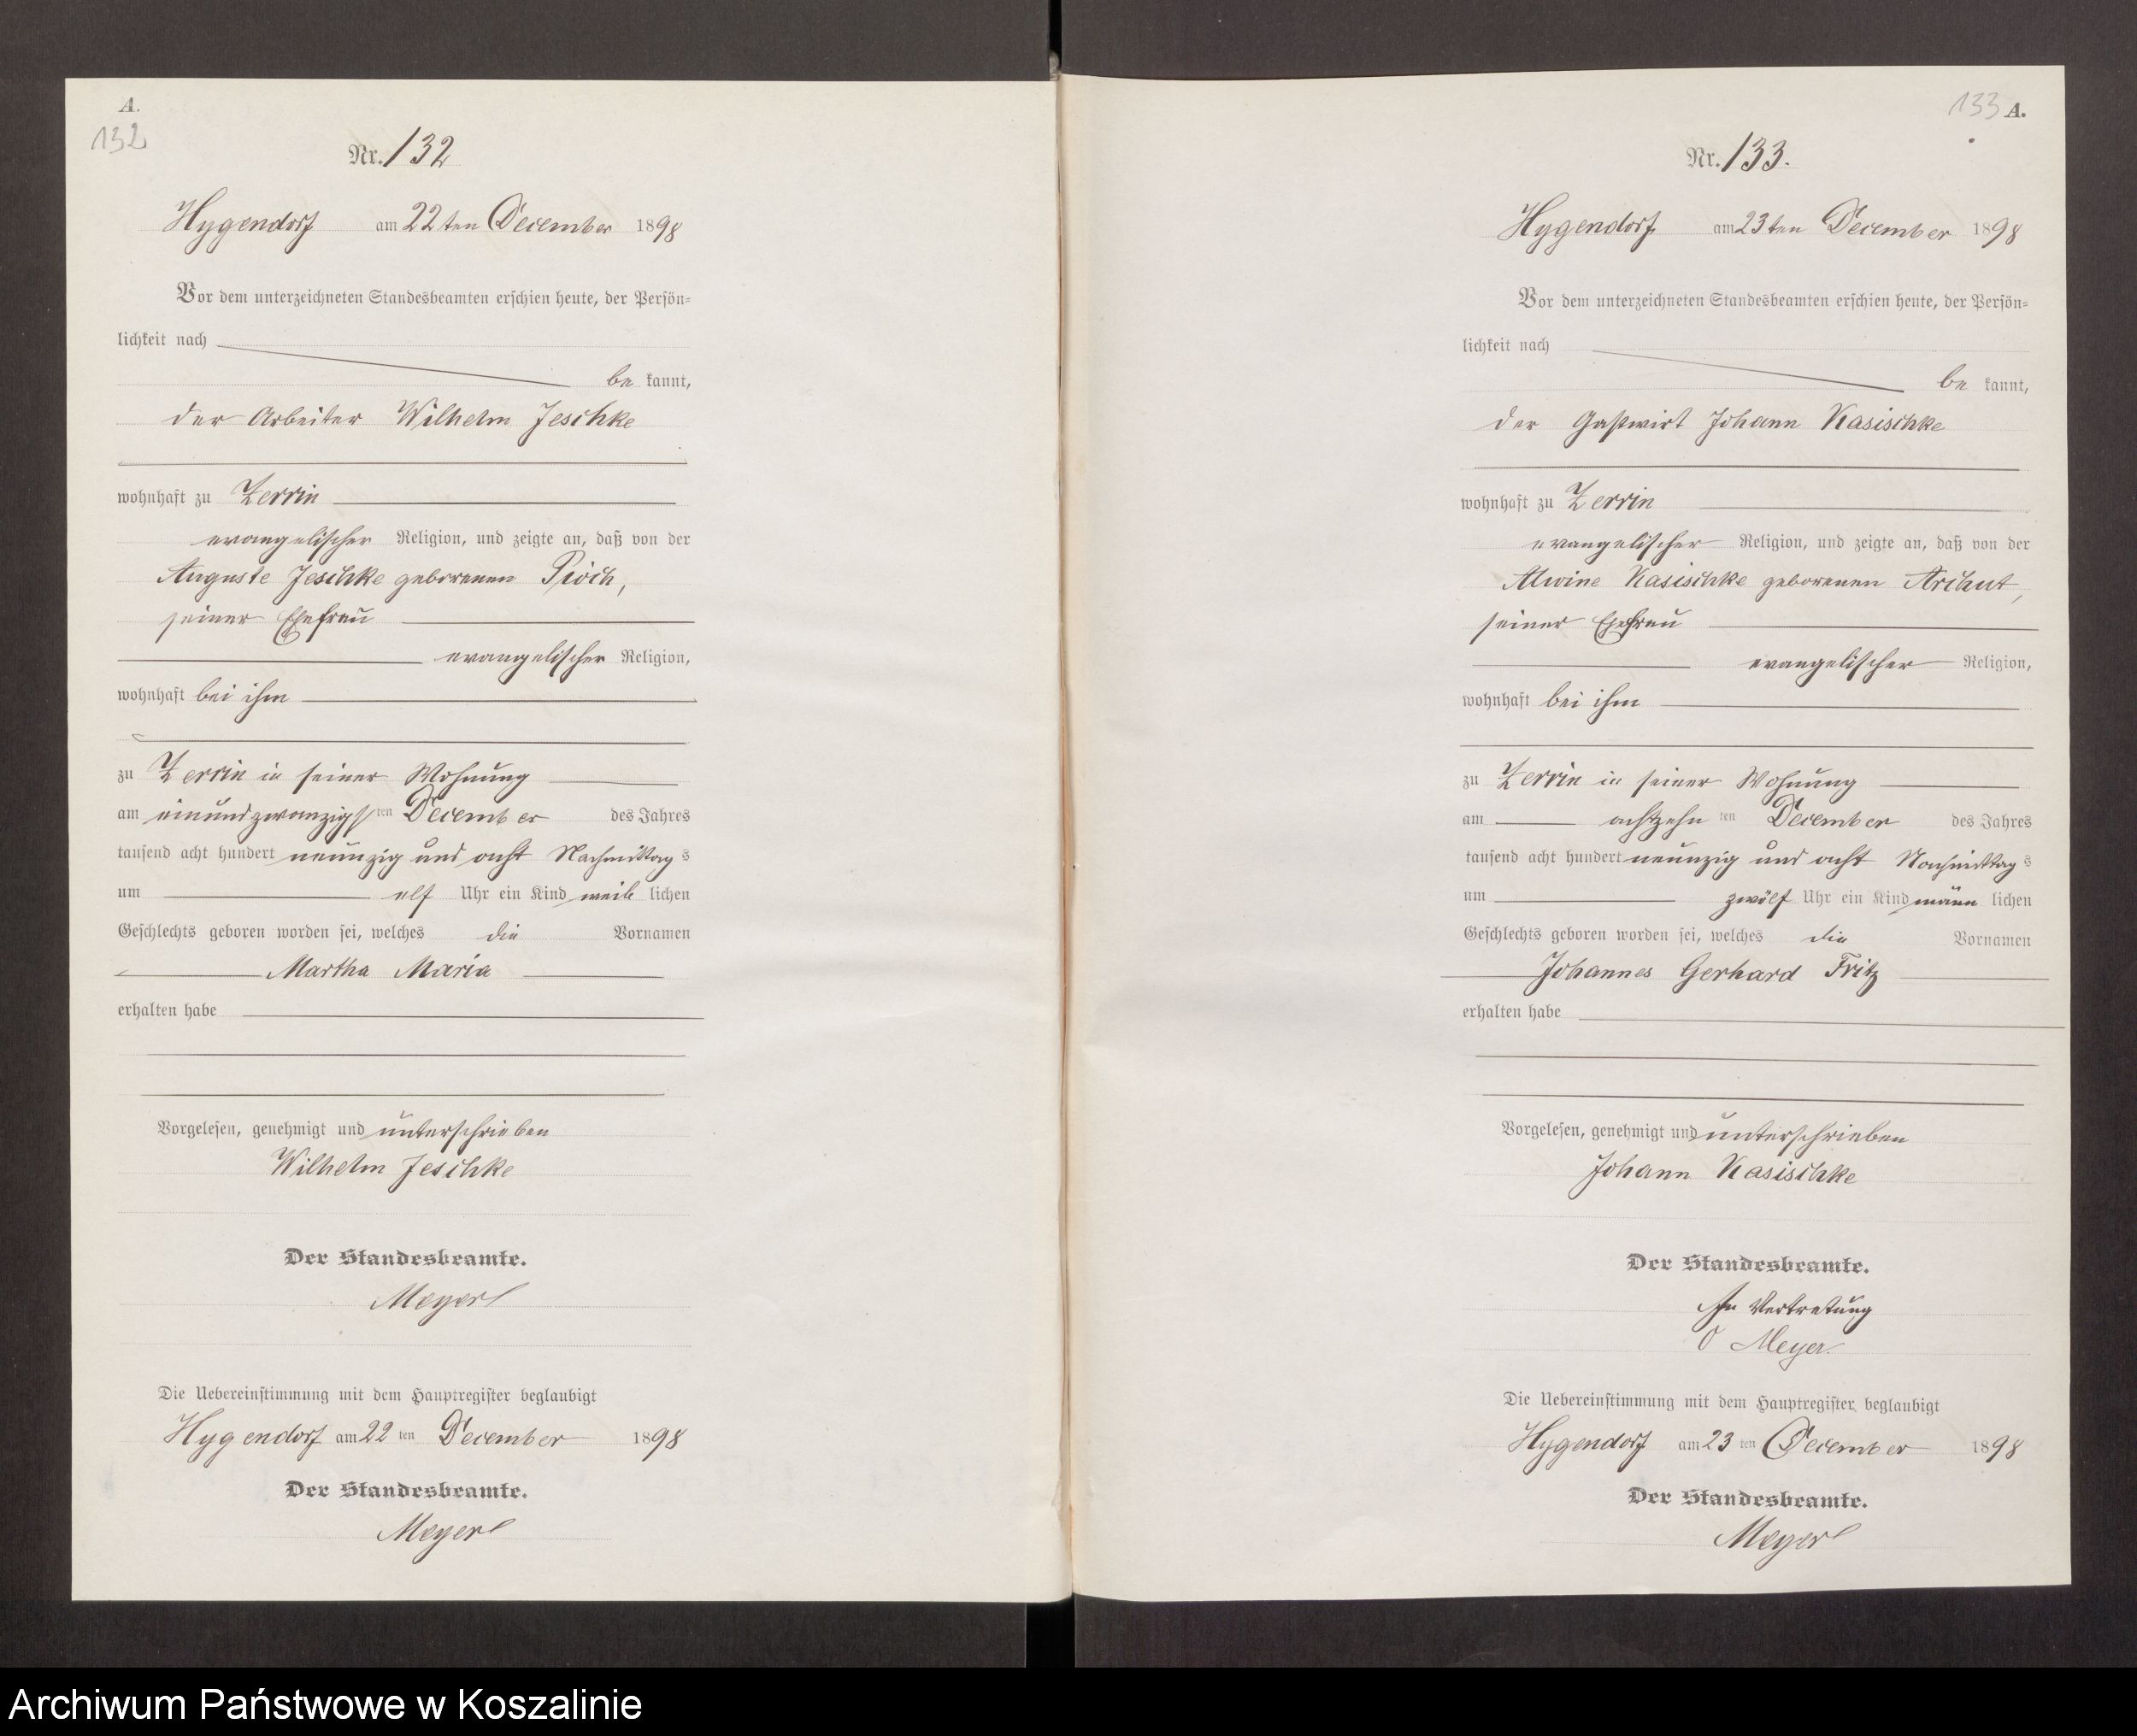 A.
132
Nr. 132
Hygendorf am 22ten December 1898
Vor dem unterzeichneten Standesbeamten erschien heute, der Persön-
lichkeit nach
be kannt,
der Arbeiter Wilhelm Jeschke
wohnhaft zu Zerrin
evangelischer Religion, und zeigte an, daß von der
Auguste Jeschke geborenen Pioch,
seiner Ehefrau
evangelischer Religion,
wohnhaft bei ihm
zu Zerrin in seiner Wohnung
am einundzwanzigsten December des Jahres
tausend acht hundert neunzig und acht Nachmittags
um elf Uhr ein Kind weib lichen
Geschlechts geboren worden sei, welches die Vornamen
Martha Maria
erhalten habe
Vorgelesen, genehmigt und unterschrieben
Wilhelm Jeschke
Der Standesbeamte.
Meyer
Die Uebereinstimmung mit dem Hauptregister beglaubigt
Hygendorf am 22 ten December 1898
Der Standesbeamte.
Meyer
133 A.
Nr. 133.
Hygendorf am 23ten December 1898
Vor dem unterzeichneten Standesbeamten erschien heute, der Persön-
lichkeit nach
be kannt,
der Gastwirt Johann Kasischke
wohnhaft zu Zerrin
evangelischer Religion, und zeigte an, daß von der
Alwine Kasischke geborenen Archut,
seiner Ehefrau
evangelischer Religion,
wohnhaft bei ihm
zu Zerrin in seiner Wohnung
am achtzehn ten December des Jahres
tausend acht hundert neunzig und acht Nachmittags
um zwölf Uhr ein Kind männ lichen
Geschlechts geboren worden sei, welches die Vornamen
Johannes Gerhard Fritz
erhalten habe
Vorgelesen, genehmigt und unterschrieben
Johann Kasischke
Der Standesbeamte.
In Vertretung
O Meyer.
Die Uebereinstimmung mit dem Hauptregister beglaubigt
Hygendorf am 23 ten December 1898
Der Standesbeamte.
Meyer
Archiwum Państwowe w Koszalinie